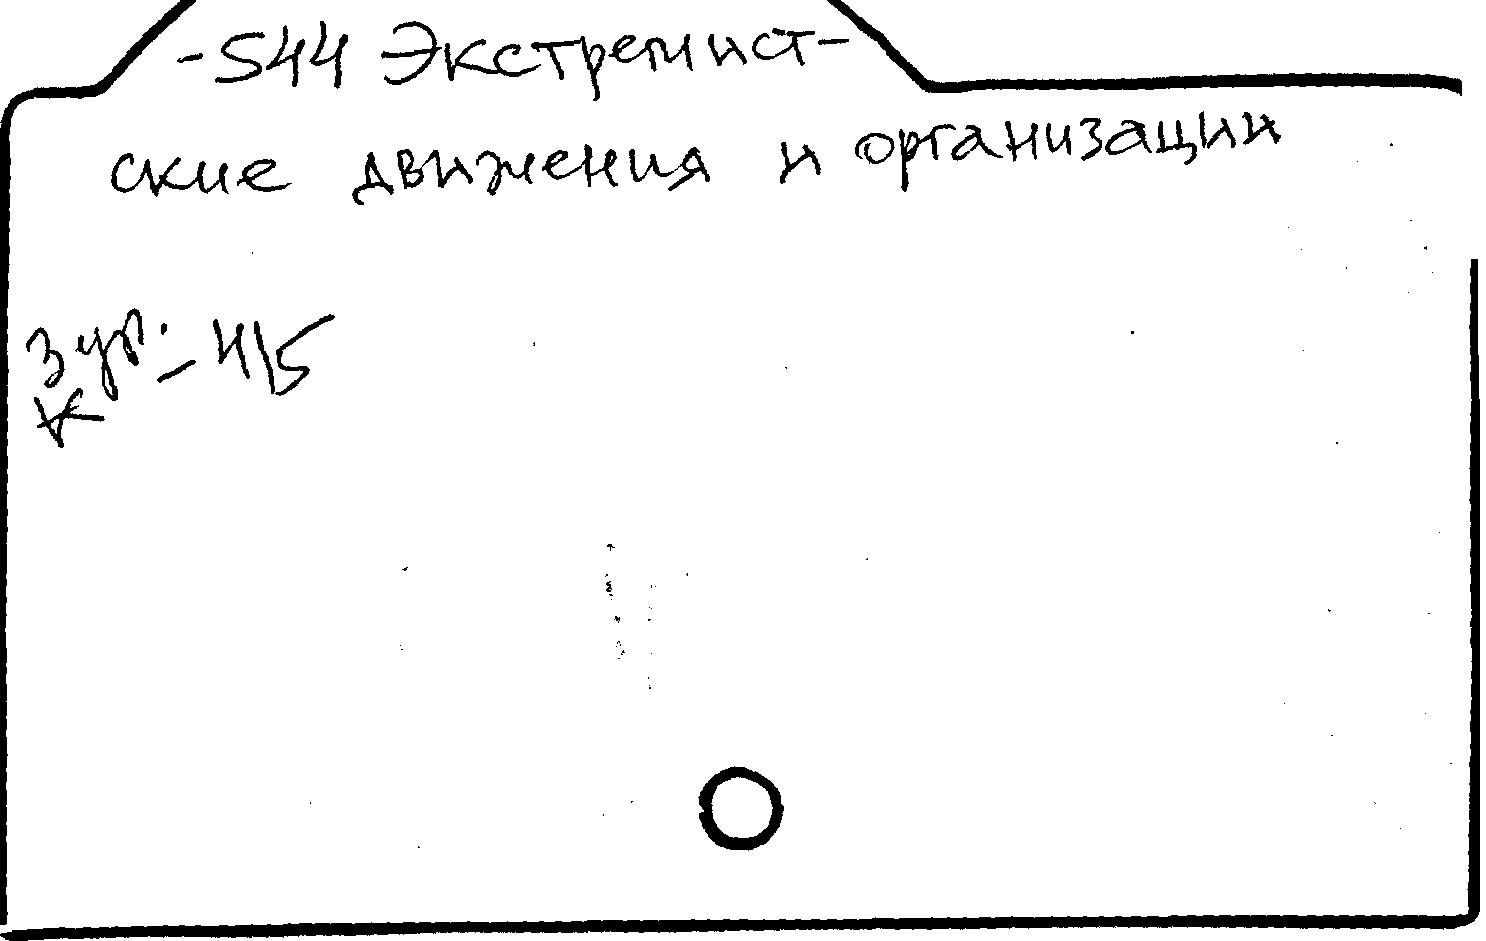 -544 Экстремист-
ские движения и организации
3 ур. - 4/5
К